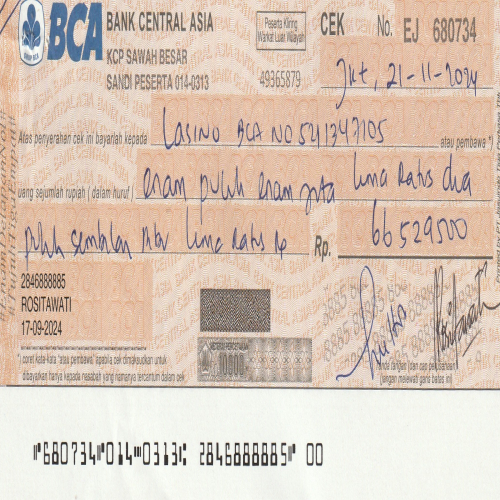 BCA BANK CENTRAL ASIA
KCP SAWAH BESAR
SANDI PESERTA 014-0313
Peserta Kliring
Warkat Luar Wilayah
49365879
CEK No. EJ 680734
Jkt, 21-11-2024
Atas penyerahan cek ini bayarlah kepada LASINO BCA NO 5211347105 atau pembawa *)
uang sejumlah rupiah (dalam huruf) enam puluh enam juta lima ratus dua
puluh sembilan ribu lima ratus Rp Rp. 66529500
2846888885
ROSITAWATI
17-09-2024
10000
*) coret kata-kata "atau pembawa" apabila cek dimaksudkan untuk
dibayarkan hanya kepada nasabah yang namanya tercantum dalam cek
tanda tangan (dan cap perusahaan)
(jangan melewati garis batas ini)
⑈680734⑈014⑉0313⑆ 2846888885⑈ 00